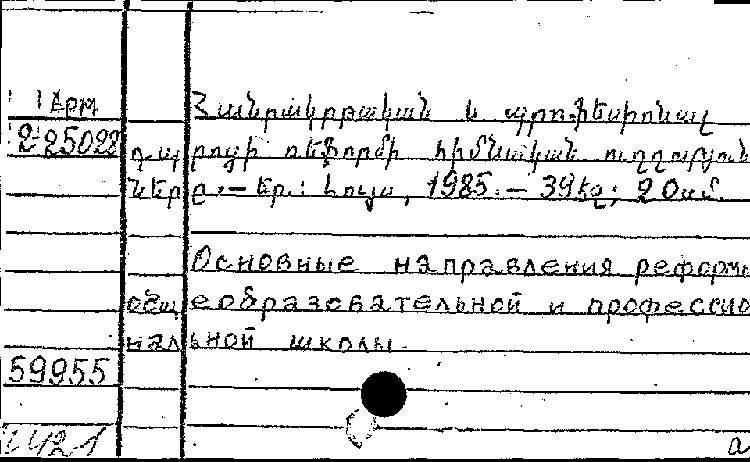 Арм
2-25022
Հանրակրթական և պրոֆեսիոնալ
դպրոցի ռեֆորմի հիմնական ուղղություն
ները. – Եր.: Լույս, 1985. – 39 էջ; 20 սմ.
Основные направления реформы
общеобразовательной и профессио
нальной школы.
59955
а